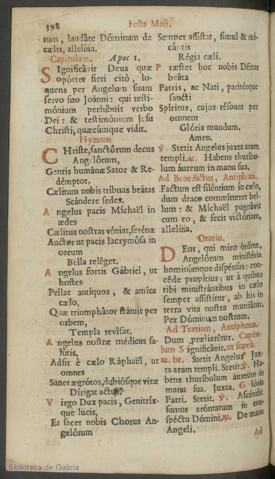 398
Festa Maii.
rum, laudáte Dóminum de
cælis, allelúia.
Capitulum. Apoc 1.
Significávit Deus quæ
opórtet fíeri citò, lo-
quens per Angelum suum
servo suo Joánni: qui testi-
mónium perhíbuit verbo
Dei: & testimónium Jesu
Christi, quæcúmque vidit.
Hymnus
Christe, sanctórum decus
Angelórum,
Gentis humánæ Sator & Re-
démptor,
Cælitum nobis tríbuas beátas
Scándere sedes.
Angelus pacis Míchaël in
ædes
Cælitus nostras véniat, serénæ
Auctor ut pacis lacrymósa in
orcum
Bella reléget.
Angelus fortis Gábriel, ut
hostes
Pellat antíquos, & amíca
cælo,
Quæ triumphátor státuit per
orbem,
Templa revísat.
Angelus nostræ médicus sa-
lútis,
Adsit è cælo Ráphaël, ut
omnes
Sanet ægrótos, dubiósque vitæ
Dírigat actus.
Virgo Dux pacis, Genitríx-
que lucis,
Et sacer nobis Chorus An-
gelórum
Semper assístat, simul & mi-
cántis
Régia cæli.
Præstet hoc nobis Déitas
beáta
Patris, ac Nati, paritérque
sancti
Spíritus, cujus résonat per
omnem
Glória mundum.
Amen.
℣. Stetit Angelus juxta aram
templi. ℟. Habens thuríbu-
lum áureum in manu sua.
Ad Benedictus, Antiphona.
Factum est siléntium in cælo,
dum draco committeret bel-
lum: & Míchaël pugnávit
cum eo, & fecit victóriam,
allelúia.
Oratio.
Deus, qui miro órdine,
Angelórum ministéria
hominúmque dispénsas: con-
céde propítius; ut à quibus
tibi ministrántibus in cælo
semper assístitur, ab his in
terra vita nostra muniátur.
Per Dóminum nostrum.
Ad Tertiam, Antiphona.
Dum præliarétur. Capitu-
lum Significávit. ut suprà.
℟. br. Stetit Angelus Jux-
ta aram templi. Stetit. ℣. Ha-
bens thuríbulum áureum in
manu sua. Juxta. Glória
Patri. Stetit. ℣. Ascéndit
fumus arómatum in con-
spéctu Dómini. ℟. De manu
Angeli.
Ad
Biblioteca de Galicia